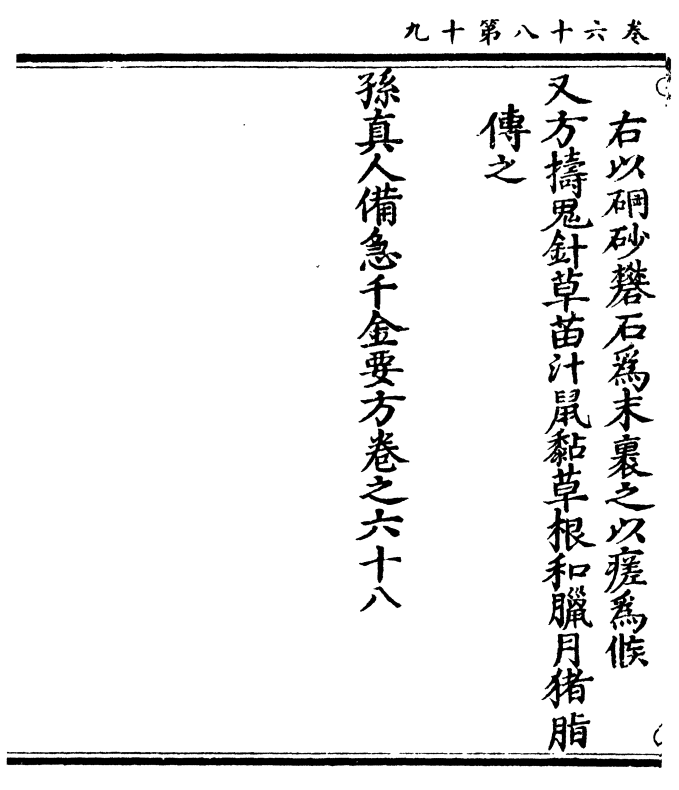 卷六十八第十九
右以硇砂礬石爲末裹之以瘥爲候
又方擣鬼針草苗汁鼠黏草根和臘月猪脂
傳之
孫真人備急千金要方卷之六十八